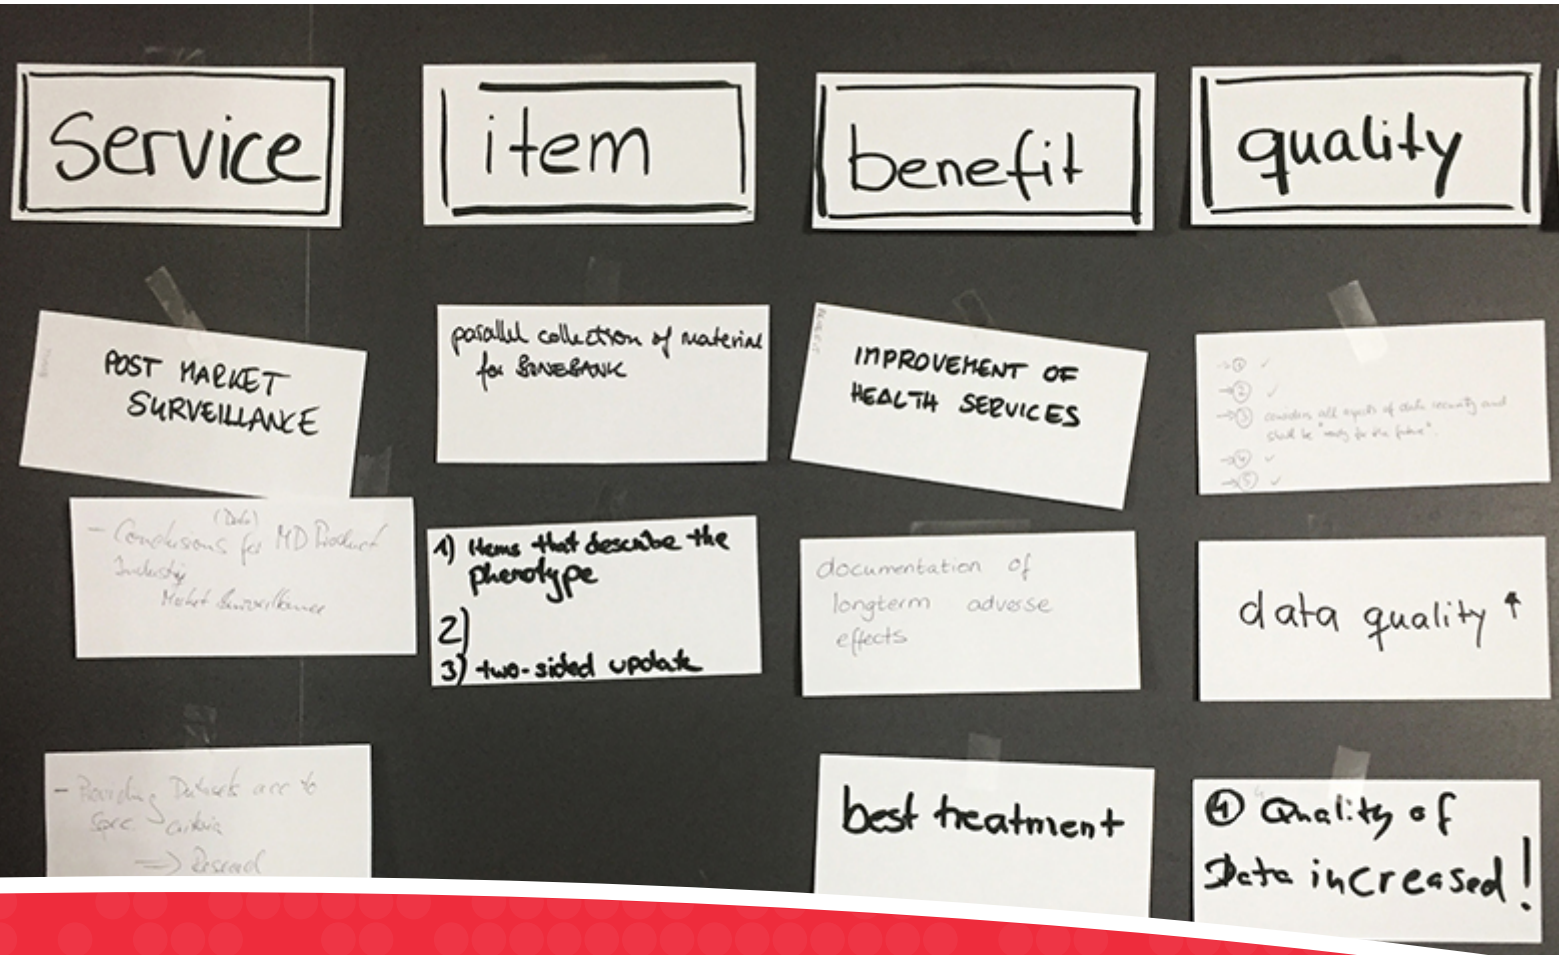 Service
item
benefit
quality
POST MARKET
SURVEILLANCE
- Conclusions for MD Product
(Data)
Industry
Market Surveillance
- Providing Datasets acc to
spec. criteria
=> Research
parallel collection of material
for BONEBANK
1) items that describe the
phenotype
2)
3) two-sided update
BENEFIT
IMPROVEMENT OF
HEALTH SERVICES
documentation of
longterm adverse
effects
best treatment
→① ✓
→② ✓
→③ considers all aspects of data security and
shall be "ready for the future".
→④ ✓
→⑤ ✓
data quality ↑
④ Quality of
Data increased!